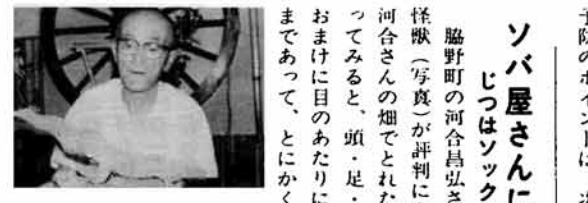 ソバ屋さんに
じつはソック
脇野町の河合昌弘さ
怪獣（写真）が評判に
河合さんの畑でとれた
ってみると、頭・足・
おまけに目のあたりに
まであって、とにかく